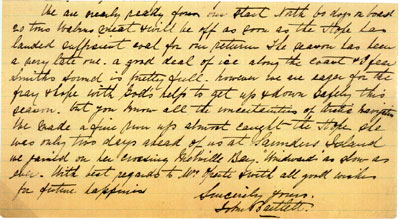 We are nearly ready for our start North 60 days on board
20 tons Walrus meat will be off as soon as the Hope has
landed sufficient coal for our return The season has been
a very late one. a good deal of ice along the coast & I fear
Smiths Sound is pretty full. however we are eager for the
fray & hope with God's help to get up & down safely this
season. but you know all the uncertainties of Arctic Navigation
We made a fine run up almost caught the Hope she
was only two days ahead of us at Saunders Island
we gained on her crossing Melville Bay. Windward as slow as
ever. With best regards to Mrs and all good wishes
for future happiness
Sincerely yours.
John Bartlett